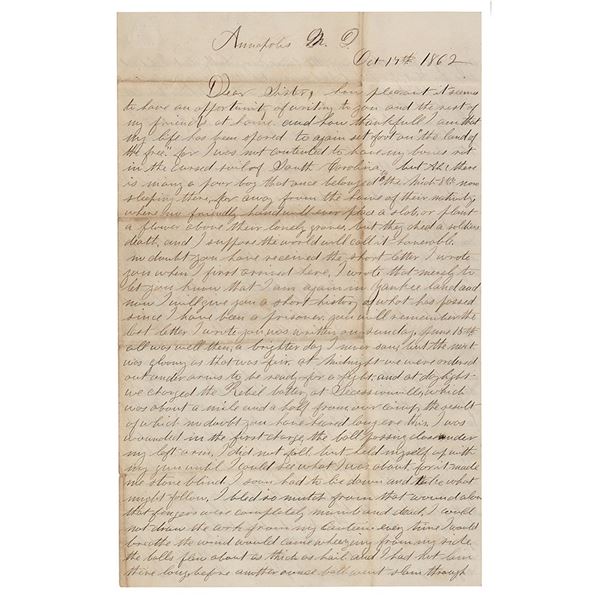 Annapolis M. D.
Oct 17th 1862
Dear Sister, how pleasant it seems
to have an opportunity of writing to you and the rest of
my friends at home. and how thankfull I am that
my life has been spared to again set foot on "the land of
the free." for I was not contented to have my bones rot
in the cursed soil of South Carolina, but Ah! there
is many a poor boy that once belonged to the Mich 8th now
sleeping there, far away from the home of their nativity
where no friendly hand will ever place a slab, or plant
a flower above their lonely graves, but they died a soldiers
death, and I suppose the world will call it honorable.
no doubt you have received the short letter I wrote
you when I first arrived here, I wrote that merely to
let you know that I am again in Yankee land and
now I will give you a short history of what has passed
since I have been a prisoner. you will remember the
last letter I wrote you was written on sunday. June 15th
all was well then, a brighter day I never saw, but the next
was gloomy as that was fair. at midnight we were ordered
out under arms to be ready for a fight. and at daylight
we charged the Rebel battery at Secessionville, which
was about a mile and a half from our camp, the result
of which no doubt you have heard long ere this, I was
wounded in the first charge, the ball passing close under
my left arm, I did not fall but held myself up with
my gun until I could see what I was about, for it made
me stone blind I soon had to lie down and take what
might follow, I bled so much from that wound alone
that fingers were completely numb and dead, I could
not draw the cork from my canteen every time I would
breathe the wind would come wheezing from my side
the balls flew about as thick as hail and I had not lain
there long before another ounce ball went slam through